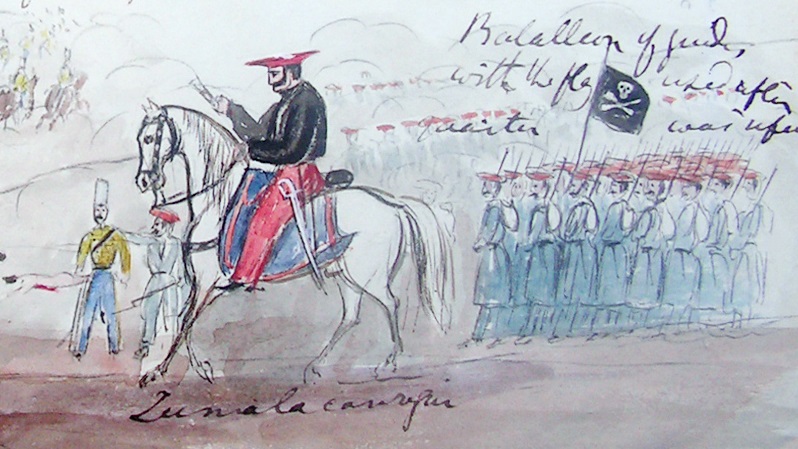 Batalleon of guids,
with the flag used after
quarter was refu
Zumalacarregui